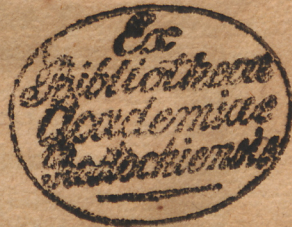 Ex
Bibliothecae
Academiae
Rostochiensis